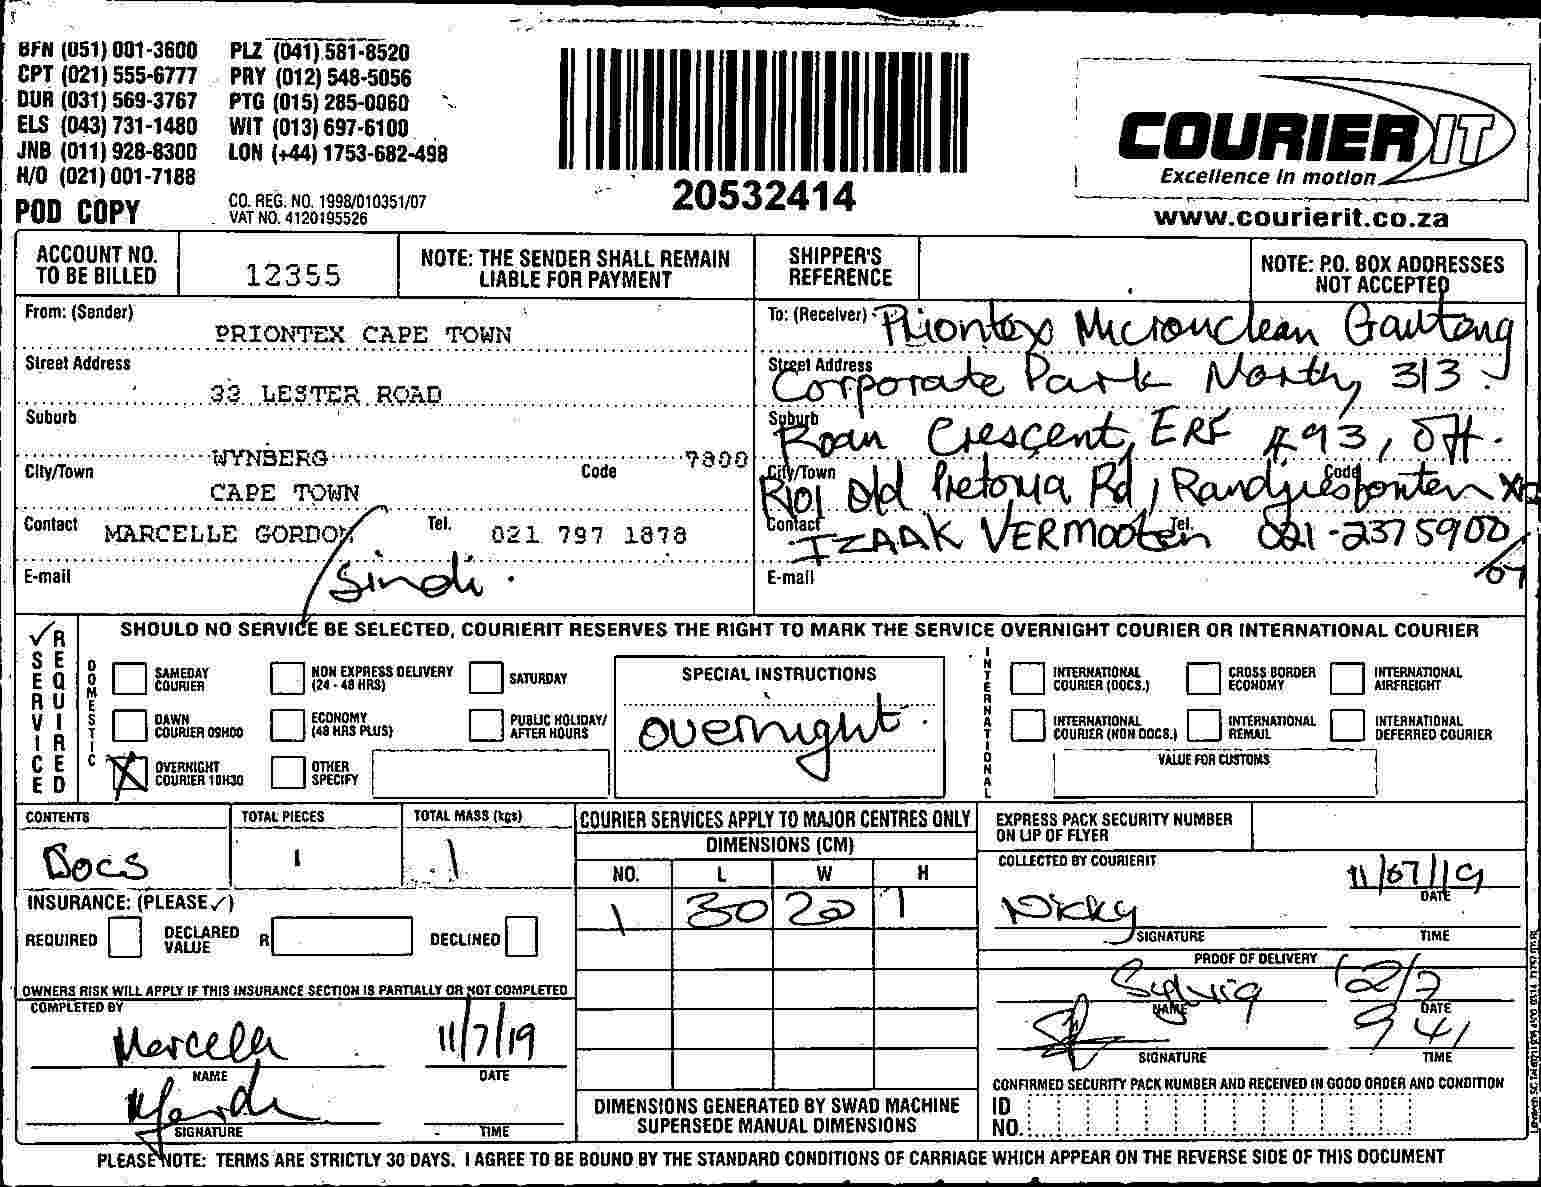 BFN (051) 001-3600 PLZ (041) 581-8520
CPT (021) 555-6777 PRY (012) 548-5056
DUR (031) 569-3767 PTG (015) 285-0060
ELS (043) 731-1480 WIT (013) 697-6100
JNB (011) 928-8300 LON (+44) 1753-682-498
H/O (021) 001-7188
POD COPY
CO. REG. NO. 1998/010351/07
VAT NO. 4120195526
20532414
COURIER IT
Excellence in motion
www.courierit.co.za
ACCOUNT NO. TO BE BILLED
12355
NOTE: THE SENDER SHALL REMAIN LIABLE FOR PAYMENT
SHIPPER'S REFERENCE
NOTE: P.O. BOX ADDRESSES NOT ACCEPTED
From: (Sender)
PRIONTEX CAPE TOWN
Street Address
33 LESTER ROAD
Suburb
WYNBERG
City/Town
CAPE TOWN
Code
7800
Contact
MARCELLE GORDON
Tel.
021 797 1878
E-mail
Sindi.
To: (Receiver)
Priontex Micronclean Gauteng
Street Address
Corporate Park North, 313
Suburb
Roan Crescent, ERF #93, Off.
City/Town
Code
R101 Old Pretoria Rd, Randjiesfontein
Contact
IZAAK VERMOOTEN
Tel.
021-2375900/07
E-mail
SERVICE REQUIRED
SHOULD NO SERVICE BE SELECTED, COURIERIT RESERVES THE RIGHT TO MARK THE SERVICE OVERNIGHT COURIER OR INTERNATIONAL COURIER
DOMESTIC
SAMEDAY COURIER
NON EXPRESS DELIVERY (24 - 48 HRS)
SATURDAY
DAWN COURIER 09H00
ECONOMY (48 HRS PLUS)
PUBLIC HOLIDAY/ AFTER HOURS
X OVERNIGHT COURIER 10H30
OTHER SPECIFY
SPECIAL INSTRUCTIONS
overnight.
INTERNATIONAL
INTERNATIONAL COURIER (DOCS.)
CROSS BORDER ECONOMY
INTERNATIONAL AIRFREIGHT
INTERNATIONAL COURIER (NON DOCS.)
INTERNATIONAL REMAIL
INTERNATIONAL DEFERRED COURIER
VALUE FOR CUSTOMS
CONTENTS
Docs
TOTAL PIECES
1
TOTAL MASS (kgs)
1
INSURANCE: (PLEASE ✓)
REQUIRED
DECLARED VALUE R
DECLINED
OWNERS RISK WILL APPLY IF THIS INSURANCE SECTION IS PARTIALLY OR NOT COMPLETED
COMPLETED BY
Marcelle
11/7/19
NAME
DATE
SIGNATURE
TIME
COURIER SERVICES APPLY TO MAJOR CENTRES ONLY
DIMENSIONS (CM)
NO. L W H
1 30 20 1
DIMENSIONS GENERATED BY SWAD MACHINE SUPERSEDE MANUAL DIMENSIONS
EXPRESS PACK SECURITY NUMBER ON LIP OF FLYER
COLLECTED BY COURIERIT
11/07/19
DATE
Nicky
SIGNATURE
TIME
PROOF OF DELIVERY
12/7
NAME
DATE
9 41
SIGNATURE
TIME
CONFIRMED SECURITY PACK NUMBER AND RECEIVED IN GOOD ORDER AND CONDITION
ID NO.
PLEASE NOTE: TERMS ARE STRICTLY 30 DAYS. I AGREE TO BE BOUND BY THE STANDARD CONDITIONS OF CARRIAGE WHICH APPEAR ON THE REVERSE SIDE OF THIS DOCUMENT